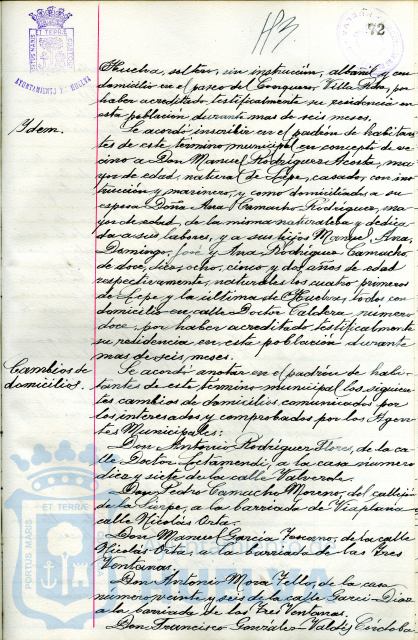 113
72
PORTUS MARIS ET TERRÆ CUSTODIA
AYUNTAMIENTO DE HUELVA
Huelva, soltero, sin instrucción, albañil y con
domicilio en el paseo del Conquero, Villa Pedro, por
haber acreditado testificalmente su residencia en
esta población durante mas de seis meses.
Idem.
Se acordó inscribir en el padrón de habitan-
tes de este término municipal en concepto de ve-
cino a Don Manuel Rodríguez Acosta, ma-
yor de edad, natural de Lepe, casado, con ins-
trucción y marinero, y como domiciliados a su
esposa Doña Ana Camacho Rodríguez, ma-
yor de edad, de la misma naturaleza y dedica-
da a sus labores, y a sus hijos Manuel, Ana,
Domingo, José y Ana Rodríguez Camacho
de doce, diez, ocho, cinco y dos años de edad
respectivamente, naturales los cuatro primeros
de Lepe y la última de Huelva, todos con
domicilio en calle Doctor Caldera número
doce, por haber acreditado testificalmente
su residencia en esta población durante
mas de seis meses.
Cambios de
domicilios.
Se acordó anotar en el padrón de habi-
tantes de este término municipal los siguien-
tes cambios de domicilios, comunicados por
los interesados y comprobados por los Agen-
tes Municipales:
Don Antonio Rodríguez Flores, de la ca-
lle Doctor Letamendi, a la casa número
diez y siete de la calle Valverde.
Don Pedro Camacho Moreno, del callejón
de la a la barriada de Viaplana
calle Nicolás Orta.
Don Manuel García Toscano, de la calle
Nicolás Orta, a la barriada de las Tres
Ventanas.
Don Antonio Mora Tello, de la casa
número veinte y seis de la calle Garci-Díaz
a la barriada de las Tres Ventanas.
Don Francisco González-Valdés Córdoba
PORTUS MARIS ET TERRÆ